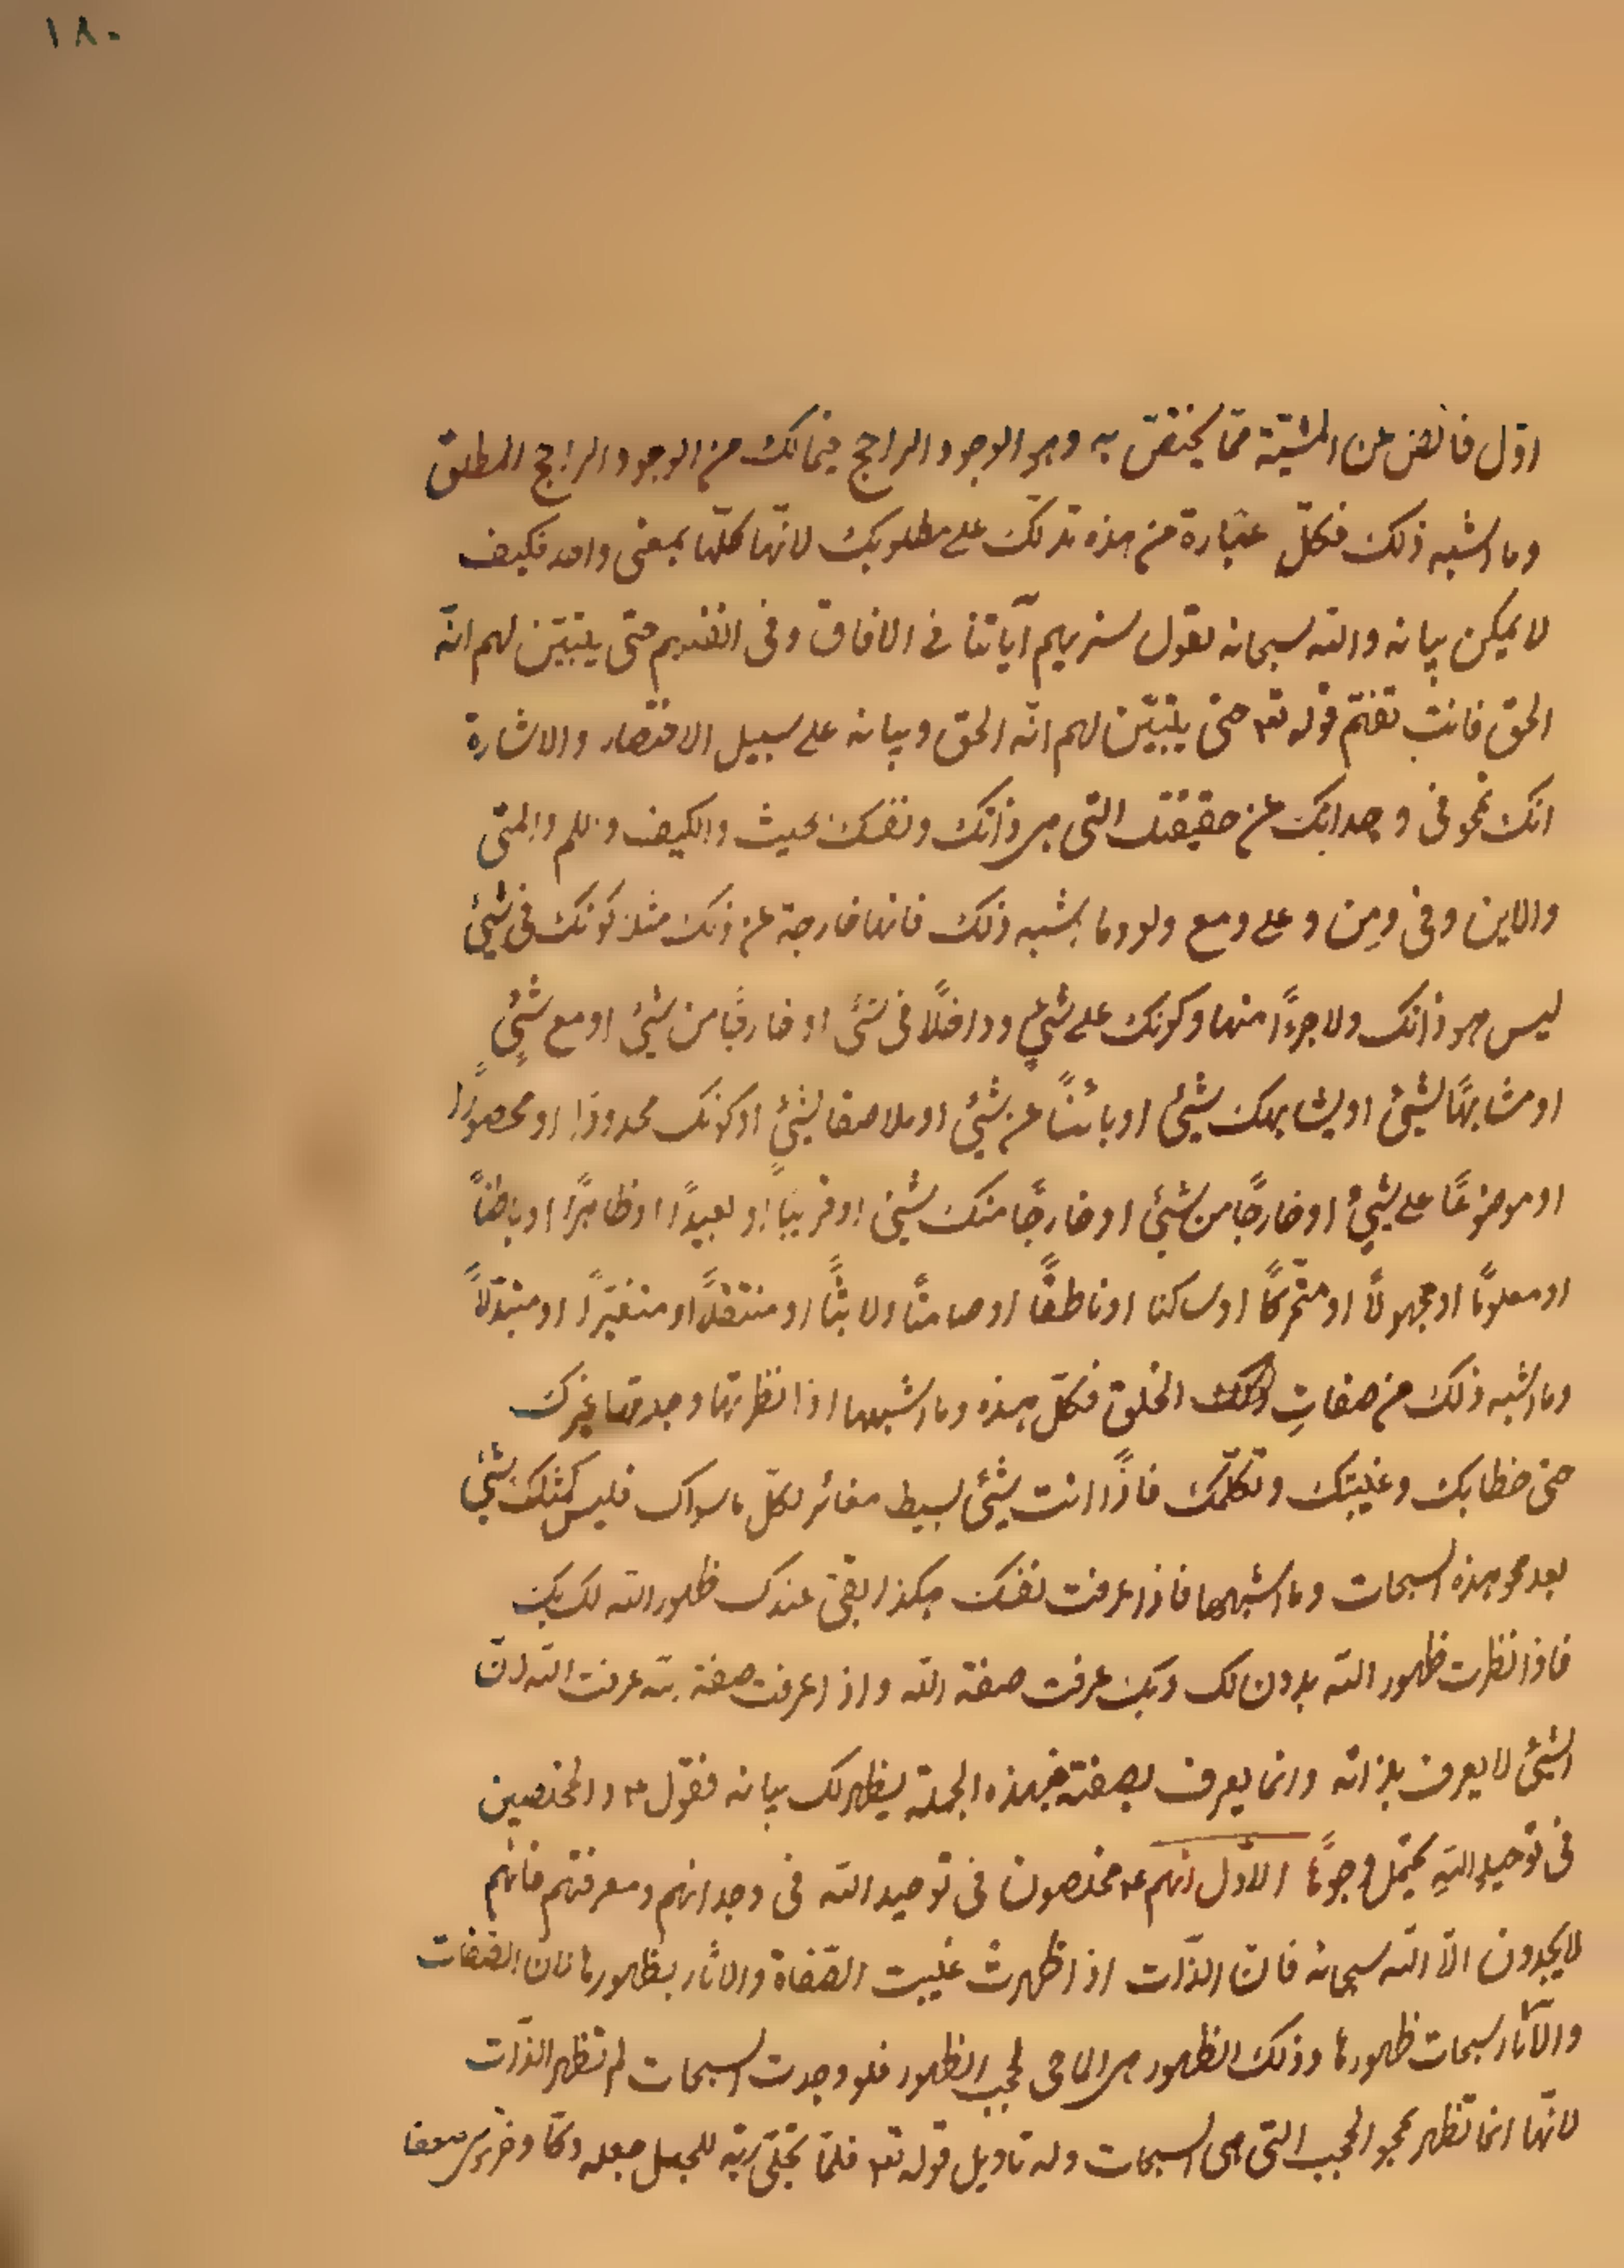 ١٨٠
اوّل فائض عن المشيّة ممّا يختصّ به وهو الوجود الراجح فيما لك من الوجود الراجح المطلق
وما اشبه ذلك فكلّ عبارة من هذه تدلّك على مطلوبك لانّها كلّها بمعنى واحد فكيف
لا يمكن بيانه والله سبحانه يقول سنريهم آياتنا في الافاق وفى انفسهم حتى يتبيّن لهم انّه
الحق فانت تفهم قوله تع حتى يتبيّن لهم انّه الحق وبيانه على سبيل الاقتصار والاشارة
انك تمحو فى وجدانك عن حقيقتك التى هى ذاتك ونفسك بحيث والكيف والم والمتى
والاين وفى ومِن وعلى ومع ولو وما يشبه ذلك فانها خارجة عن ذلك مثل كونك فى شيئ
ليس هو ذاتك ولا جزءًا منها وكونك على شيئ وداخلًا فى شئ او خارجًا من شيئ او مع شيئ
او مشابهًا لشيئ او يشابهك شيئ او بائنًا عن شيئ او ملاصقا لشيئ او كونك محدودًا او محصورًا
او موضوعًا على شيئ او خارجًا من شيئ او خارجًا منك شيئ او قريبًا او بعيدًا او ظاهرًا او باطنًا
او معلومًا او مجهولًا او متحرّكًا او ساكنا او ناطقًا او صامتًا او لابثًا او منتقلًا او متغيّرًا او متبدّلًا
وما اشبه ذلك من صفاتِ الخلق فكلّ هذه وما اشبهها اذا نظرتها وجدتها غيرك
حتى خطابك وغيبتك وتكلّمك فاذًا انت شيئ بسيط مغائر لكلّ ما سواك فليس كمثلك شيئ
بعد محو هذه السبحات وما اشبهها فاذا عرفت نفسك هكذا بقى عندك ظهور الله لك بك
فاذا نظرت ظهور الله بدون لك وبك عرفت صفة الله واذا عرفت صفة الله عرفت الله لانّ
الشيئ لا يعرف بذاته وانما يعرف بصفته فبهذه الجملة يظهر لك بيانه فقوله ع والمخلصين
فى توحيدِ اللهِ يحتمل وجوهًا الاوّل انهم ع مخلصون فى توحيد الله فى وجدانهم ومعرفتهم فانهم
لا يجدون الّا الله سبحانه فانّ الذّات اذا ظهرت غيبت الصّفاة والاثار بظهورها لانّ الصّفات
والآثار سبحات ظهورها وذلك الظهور هى الماحى لحجب الظهور فلو وجدت السبحات لم تظهر الذّات
لانّها انما تظهر بمحو الحجب التى هى السبحات وله تاويل قوله تع فلمّا تجلّى ربّه للجبل جعله دكّا وخرّ موسى صعقا